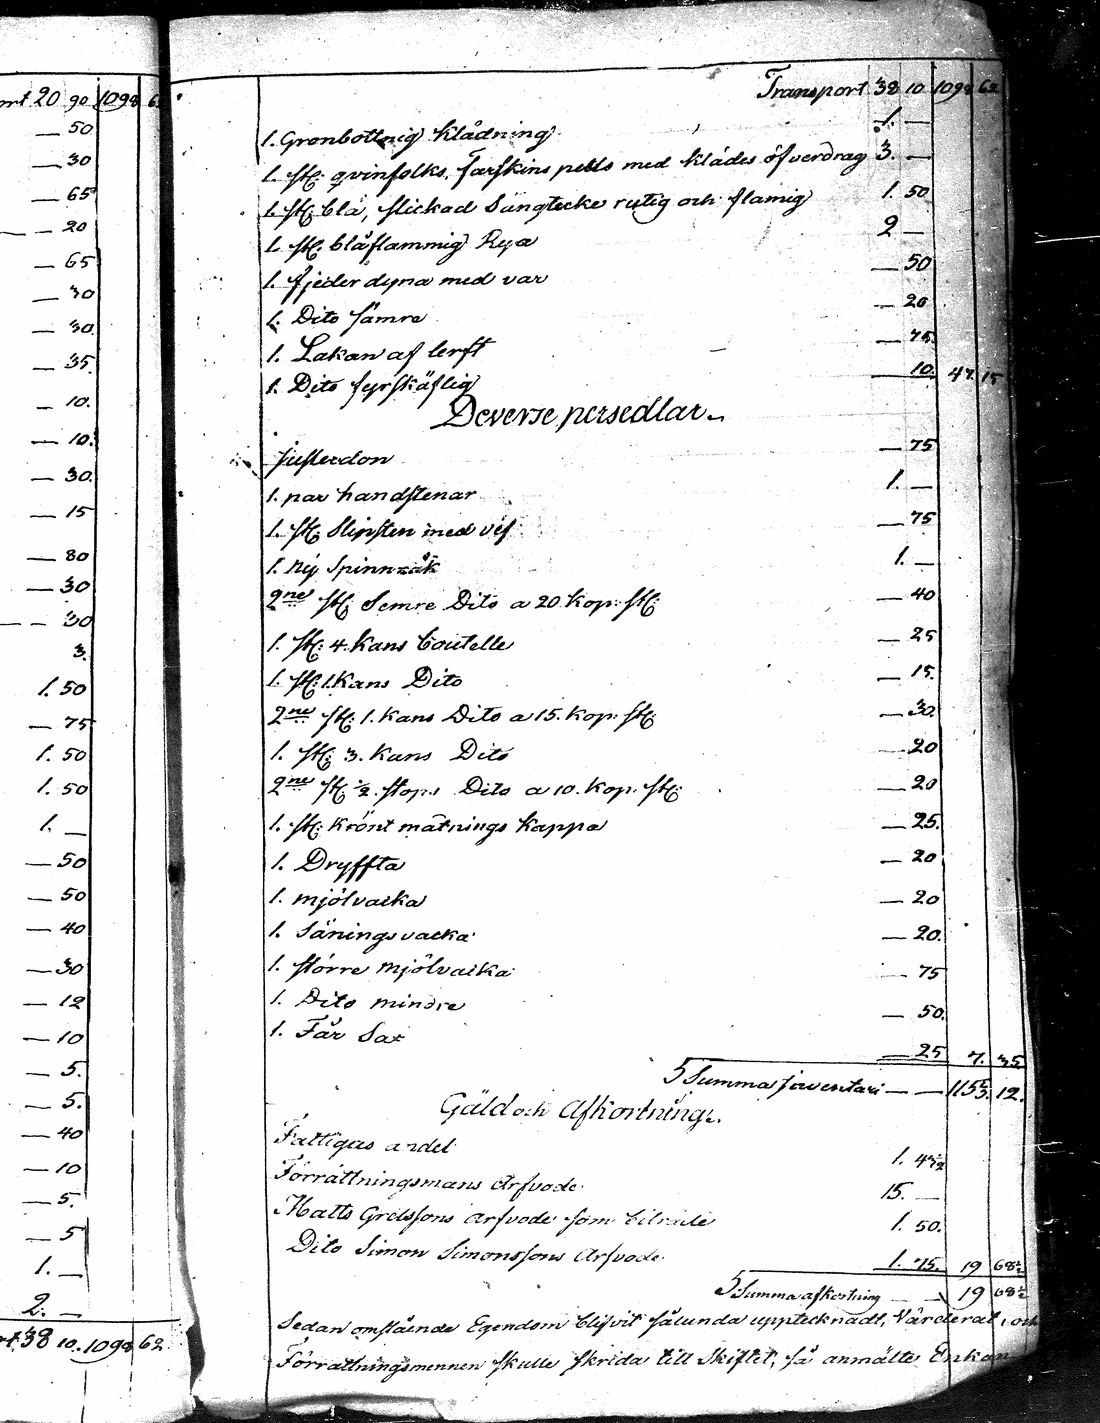 ort 20 90 1098 62
— 50
— 30
— 65
— 20
— 65
— 30
— 30.
— 35.
— 10.
— 10.
— 30.
— 15
— 80
— 30
— 30
3.
1. 50
— 75
1. 50
1. 50
1. —
— 50
— 50
— 40
— 30
— 12
— 10
— 5.
— 5.
— 40
— 10
— 5.
— 5
1. —
2. —
rt. 38 10. 1098 62.
Transport 38 10 1098 62
1. Grönbottnig klädning 1. —
1. st: qvinfolks, Farskins pells med klädes öfverdrag 3. —
1. st: blå, stickad Sängtecke rutig och flamig 1. 50
1. st: blåflammig Rya 2 —
1. fjederdyna med var — 50
1. Dito sämre — 20
1. Lakan af lerft — 75.
1. Dito fyrskäftig 10. 47. 15
Deverse persedlar.
justerdon — 75
1. par handstenar 1. —
1. st: Slipsten med vef — 75
1. ny Spinnråk 1. —
2ne st: Semre Dito a 20 kop: st: — 40
1. st: 4. kans boutelle — 25
1. st: 1. kans Dito — 15.
2ne st: 1. kans Dito a 15. kop: st: — 30.
1. st: 3. kans Dito — 20
2ne st: ½ stops Dito a 10. kop: st: — 20
1. st: krönt mätnings kappa — 25.
1. Dryffta — 20
1. mjölvacka — 20
1. Sänings vacka — 20.
1. större mjölvacka — 75
1. Dito mindre — 50.
1. Får Sax — 25 7. 35
Summa inventari — — 1153. 12.
Gäld och Afkortning.
Fattigas andel 1. 43½
Förrättningsmans Arfvode 15. —
Matts Grelssons arfvode som biträde 1. 50.
Dito Simon Simonssons Arfvode 1. 75. 19 68½
Summa afkortning — 19 68½
Sedan omstående Egendom blifvit sålunda upptecknadt, Värderat, och
Förrättningsmennen skulle skrida till Skiftet, så anmälte Enkan